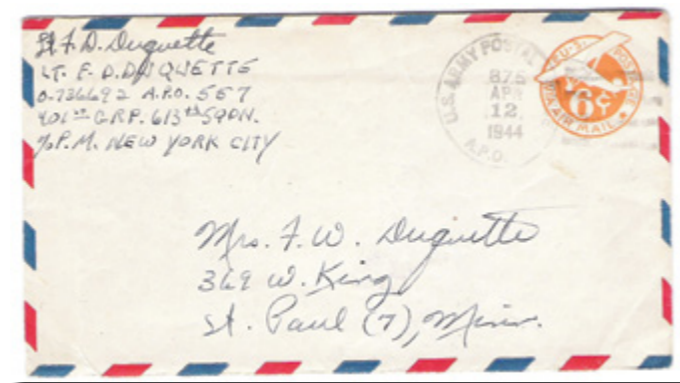 Lt F. D. Duquette
LT. F. D. DUQUETTE
O-736692 A.P.O. 557
401ST GRP. 613th SQDN.
%P.M. NEW YORK CITY
U.S. ARMY POSTAL
875
APR
12
1944
A.P.O.
POSTAGE
6¢
VIA AIR MAIL
Mrs. F. W. Duquette
369 W. King
St. Paul (7), Minn.